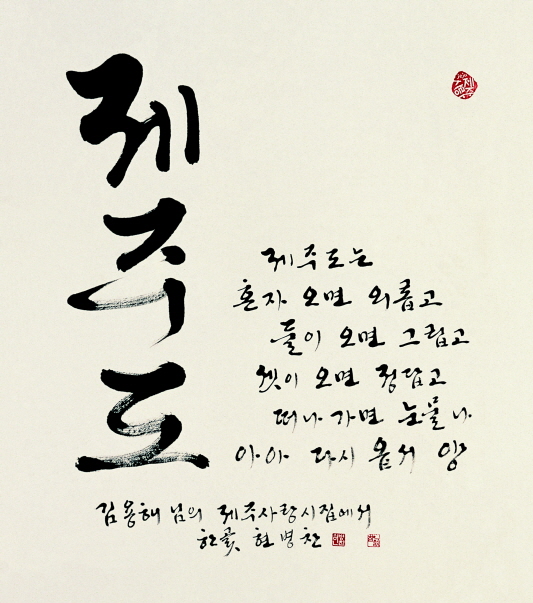 제주도
제주도는
혼자 오면 외롭고
둘이 오면 그립고
셋이 오면 정답고
떠나 가면 눈물 나
아아 다시 옵서 양
김용해 님의 제주사랑시집에서
한곬 현병찬